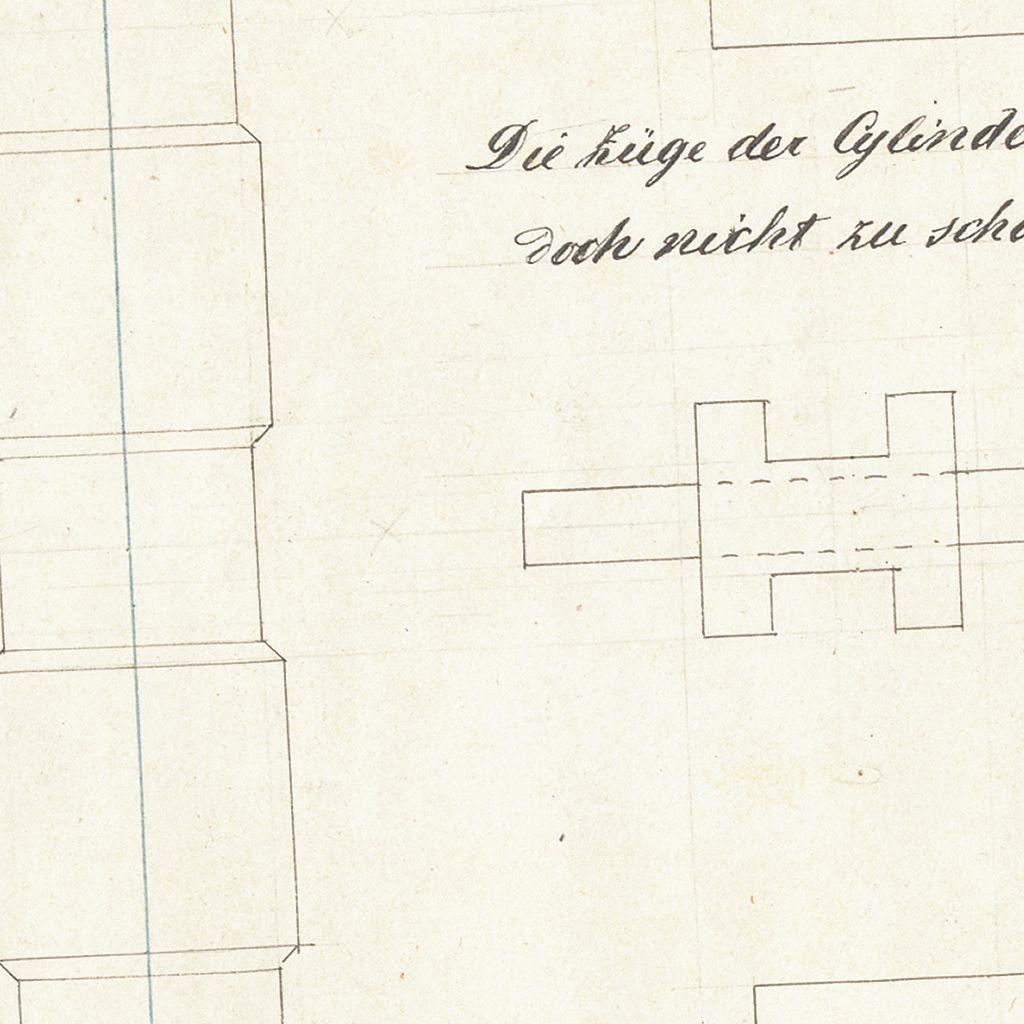 Die Züge der Cylinde
doch nicht zu scha